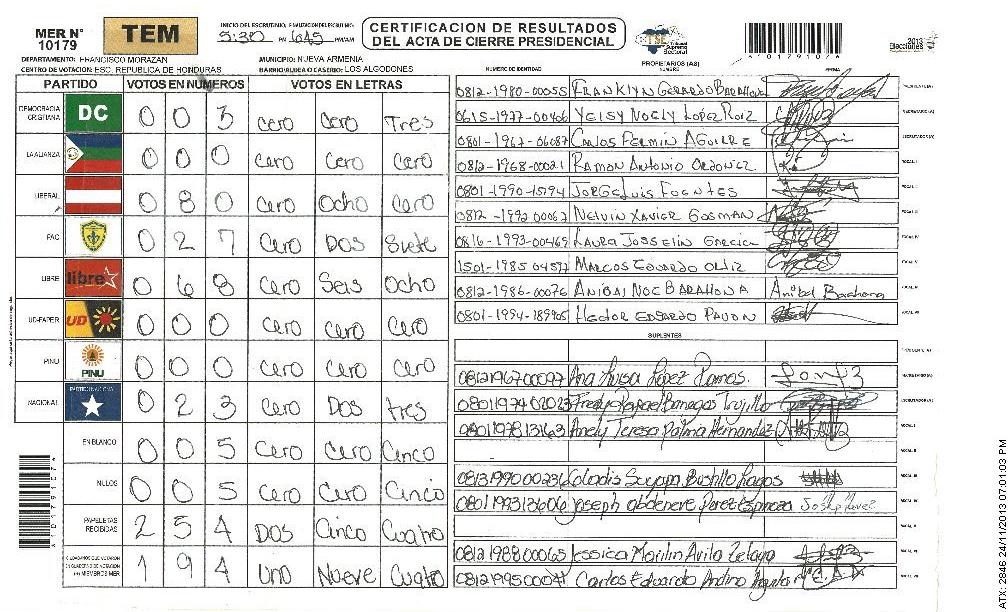 MER N° 10179
TEM
INICIO DEL ESCRUTINIO, FINALIZACION DEL ESCRUTINIO:
5:30 PM 6:45 PM/AM
CERTIFICACION DE RESULTADOS
DEL ACTA DE CIERRE PRESIDENCIAL
TSE
Tribunal Supremo Electoral
2013
Elecciones
DEPARTAMENTO: FRANCISCO MORAZAN MUNICIPIO: NUEVA ARMENIA
CENTRO DE VOTACION: ESC. REPUBLICA DE HONDURAS BARRIO/ALDEA O CASERIO: LOS ALGODONES
NUMERO DE IDENTIDAD PROPIETARIOS (AS) NOMBRE FIRMA
*10179107*
PARTIDO VOTOS EN NUMEROS VOTOS EN LETRAS
DEMOCRACIA CRISTIANA DC 0 0 3 Cero Cero Tres
LA ALIANZA 0 0 0 Cero Cero Cero
LIBERAL 0 8 0 Cero Ocho Cero
PAC 0 2 7 Cero Dos Siete
LIBRE libre 0 6 8 Cero Seis Ocho
UD-FAPER UD 0 0 0 Cero Cero Cero
PINU PINU 0 0 0 Cero Cero Cero
NACIONAL PARTIDO NACIONAL 0 2 3 Cero Dos tres
EN BLANCO 0 0 5 Cero Cero Cinco
NULOS 0 0 5 Cero Cero Cinco
PAPELETAS RECIBIDAS 2 5 4 Dos Cinco Cuatro
CIUDADANOS QUE VOTARON EN CUADERNO DE VOTACION (+) MIEMBROS MER 1 9 4 Uno Nueve Cuatro
0812-1980-00055 FRANKLYN GERARDO BARAHONA PRESIDENTE(A)
0615-1977-00466 YEISY NOELY LÓPEZ RUIZ SECRETARIO(A)
0801-1967-06087 CARLOS FERMIN AGUIRRE ESCRUTADOR(A)
0812-1968-00021 RAMON ANTONIO ORDOÑEZ VOCAL I
0801-1990-15194 JORGE LUIS FUENTES
0812-1992 00067 NELVIN XAVIER GUSMAN
0816-1993-00469 LAURA JOSSELIN GARCIA VOCAL IV
1501-1985 04577 MARCOS EDUARDO ORTIZ VOCAL V
0812-1986-00076 ANIBAL NOE BARAHONA Anibal Barahona
0801-1994-189905 HECTOR EDGARDO PAVON
SUPLENTES
PRESIDENTE(A)
0812196700097 Ana Luisa López Ramos. SECRETARIO(A)
0801197402023 Fredy Rafael Banegas Trujillo ESCRUTADOR(A)
0801197813163 Anely Teresa Palma Hernandez VOCAL I
Suyapa Bustillo
0801199313606 Joseph Perez Espinoza
0812198800065 Jessica Marilin Avila Zelaya
Carlos Eduardo Andino
*10179107*
ATX-2846 24/11/2013 07:01:03 PM